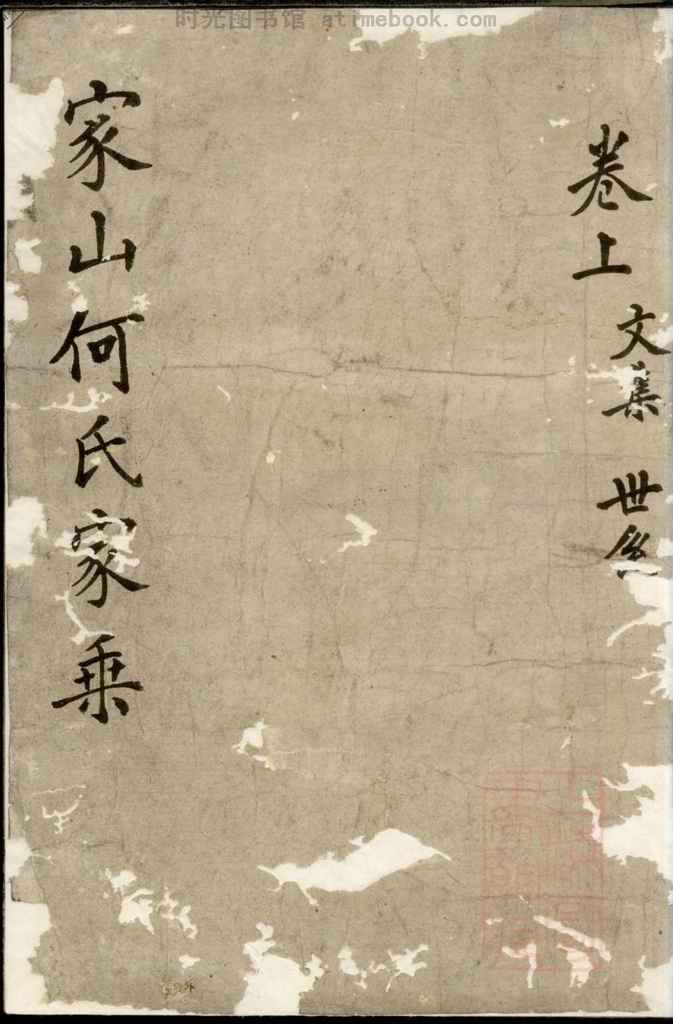 时光图书馆 atimebook.com
卷上
文集 世系
家山何氏家乗